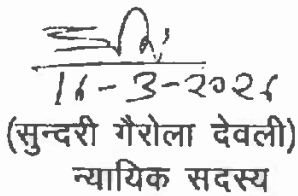 16-3-2026
(सुन्दरी गैरोला देवली)
न्यायिक सदस्य